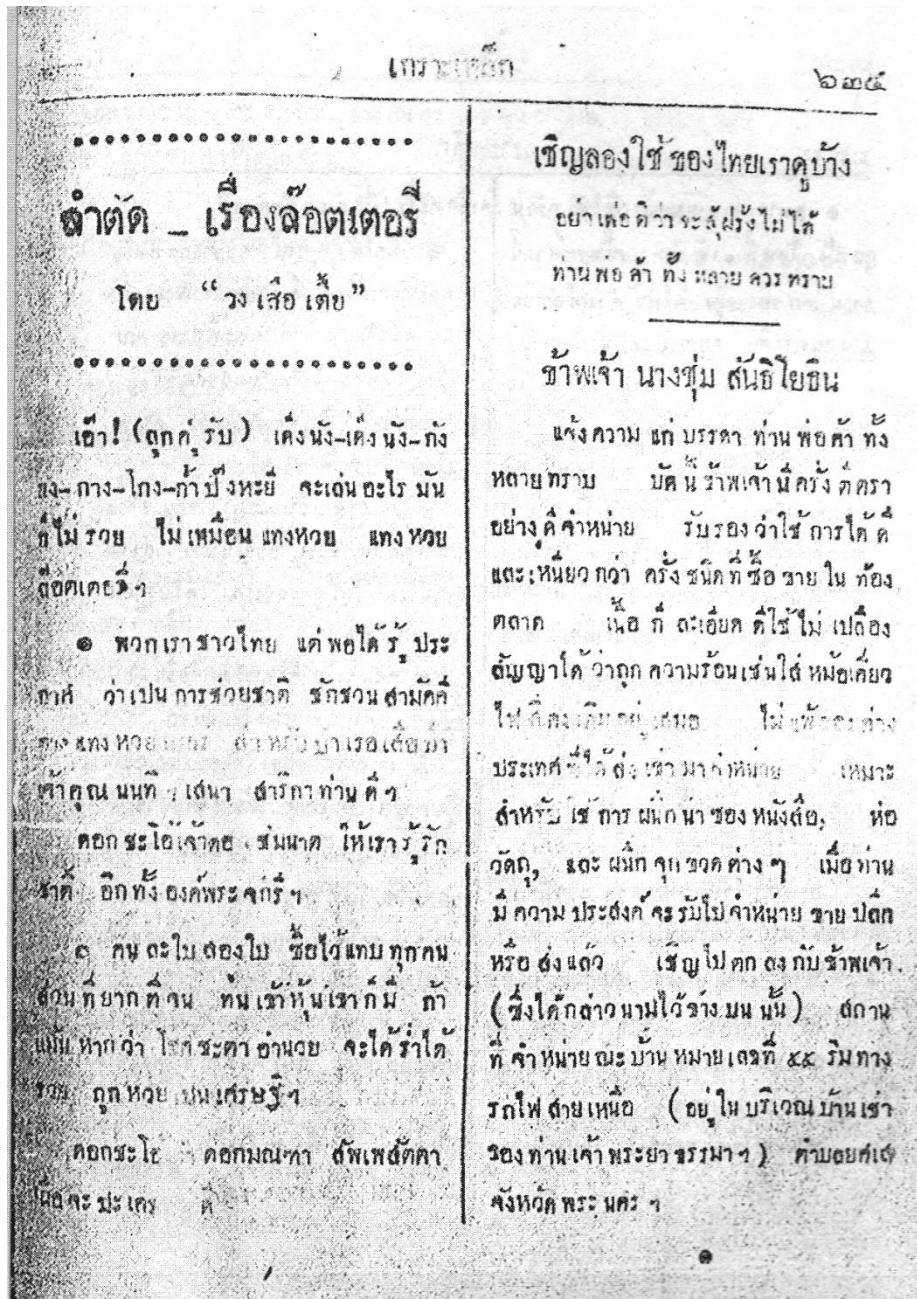 เกราะเหล็ก
๖๓๕
ลำตัด _ เรื่องล๊อตเตอรี่
โดย “วง เสือ เตี้ย”
เอ๊า! (ลูกคู่ รับ) เด็งนัง–เด็งนัง–กัง
จะเล่นอะไร มัน
ก็ไม่ รวย ไม่ เหมือน แทงหวย แทง หวย
๑ พวกเราชาวไทย แต่พอได้ รู้ ประ
กาศ ว่าเป็น การช่วยชาติ ชักชวน สามัคคี
แทง หวย
เสนา สาริกา ท่าน
ดอก ชมนาด ให้เรา รู้ รัก
ชาติ อีก ทั้ง องค์พระ จักรี ฯ
คน ละใบ สองใบ ซื้อไว้แทบ ทุกคน
ส่วน ที่ยาก ที่จน เข้าหุ้น เขาก็มี ถ้า
แม้น หากว่า โชค ชะตา อำนวย จะได้ ร่ำได้
รวย ถูก หวย เป็น เศรษฐี ฯ
ดอกมณฑา สัพเพสัตตา
เชิญลองใช้ ของไทยเราดูบ้าง
อย่า เพ่อ ดีว่า จะ สู้ ฝรั่ง ไม่ ได้
ท่าน พ่อ ค้า ทั้ง หลาย ควร ทราบ
ข้าพเจ้า นางชุ่ม สันธิโยธิน
แจ้ง ความ แก่ บรรดา ท่าน พ่อ ค้า ทั้ง
หลาย ทราบ บัด นี้ ข้าพเจ้า มี ครั่ง ตี ตรา
อย่าง ดี จำหน่าย รับ รอง ว่าใช้ การ ได้ ดี
และ เหนียว กว่า ครั่ง ชนิด ที่ ซื้อ ขาย ใน ท้อง
ตลาด เนื้อ ก็ ละเอียด ดี ใช้ ไม่ เปลือง
สัญญาได้ ว่าถูก ความร้อน เช่น ใส่ หม้อเคี่ยว
ไฟ อยู่ เสมอ ไม่ แพ้ ของ ต่าง
ประเทศ ที่ ได้ ส่ง เข้า มา จำหน่าย เหมาะ
สำหรับ ใช้ การ ผนึก น่า ซอง หนังสือ, ห่อ
วัตถุ, และ ผนึก จุก ขวด ต่าง ๆ เมื่อ ท่าน
มี ความ ประสงค์ จะ รับไป จำหน่าย ขาย ปลีก
หรือ ส่ง แล้ว เชิญ ไป ตก ลง กับ ข้าพเจ้า
(ซึ่งได้ กล่าว นามไว้ ข้าง บน นั้น) สถาน
ที่ จำ หน่าย ณะ บ้าน หมาย เลขที่ ๕๕ ริมทาง
รถไฟ สายเหนือ (อยู่ ใน บริเวณ บ้านเช่า
ของ ท่าน เจ้า พระยา ธรรมา ฯ) ตำบลยศเส
จังหวัด พระ นคร ฯ